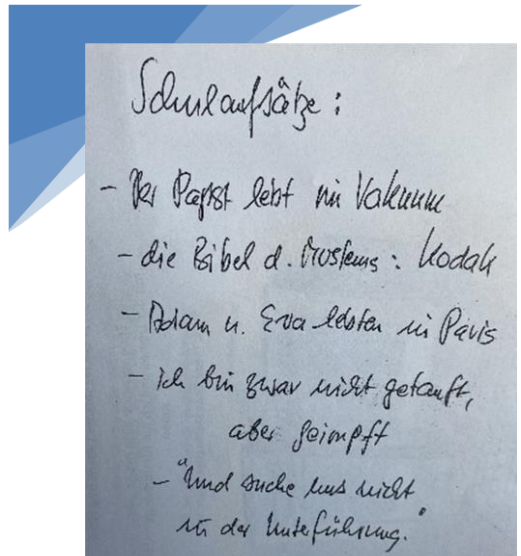 Schulaufsätze:
- Der Papst lebt im Vakuum
- die Bibel d. Moslems: Kodak
- Adam u. Eva lebten in Paris
- ich bin zwar nicht getauft,
aber geimpft
- "Und suche uns nicht
in der Unterführung."